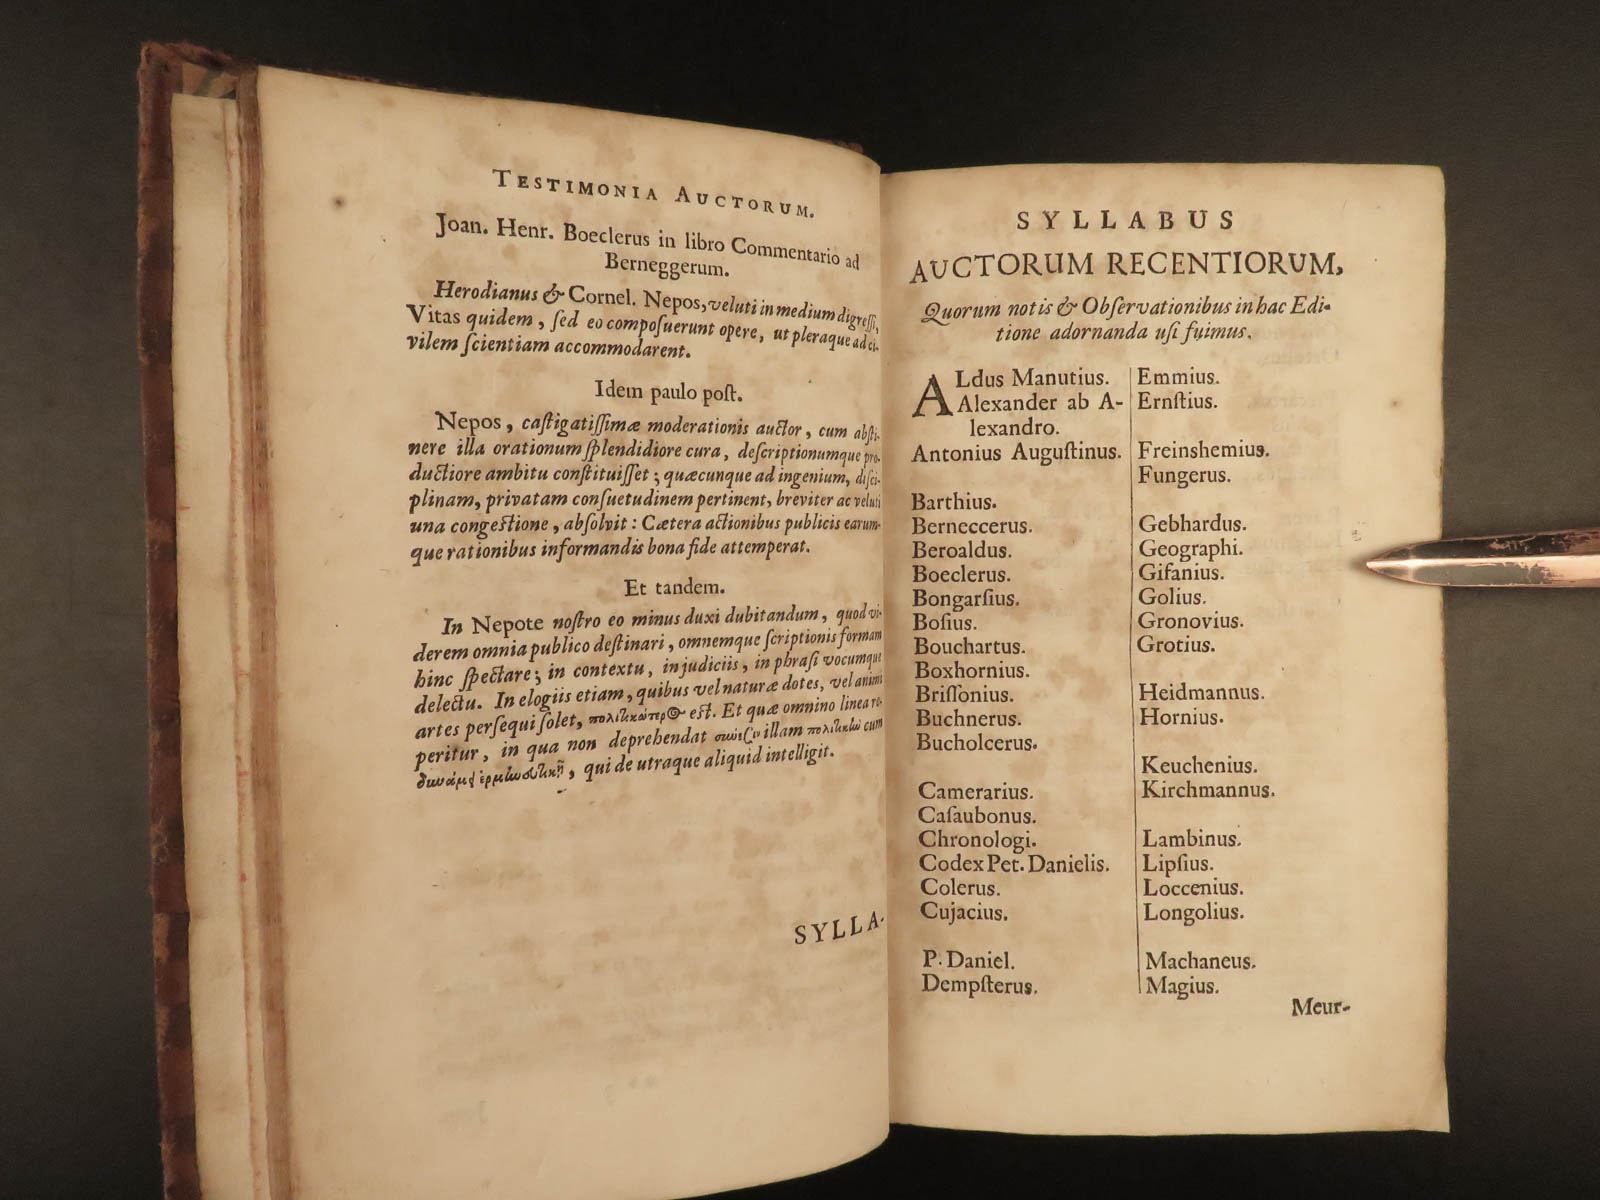 TESTIMONIA AUCTORUM.
Joan. Henr. Boeclerus in libro Commentario ad
Berneggerum.
Herodianus & Cornel. Nepos, veluti in medium digreſſi,
Vitas quidem, ſed eo compoſuerunt opere, ut pleraque ad ci-
vilem ſcientiam accommodarent.
Idem paulo poſt.
Nepos, caſtigatiſſimæ moderationis auctor, cum abſti-
nere illa orationum ſplendidiore cura, deſcriptionumque pro-
ductiore ambitu conſtituiſſet; quæcunque ad ingenium, diſci-
plinam, privatam conſuetudinem pertinent, breviter ac veluti
una congeſtione, abſolvit: Cætera actionibus publicis earum-
que rationibus informandis bona fide attemperat.
Et tandem.
In Nepote noſtro eo minus duxi dubitandum, quod vi-
derem omnia publico deſtinari, omnemque ſcriptionis formam
hinc ſpectare; in contextu, in judiciis, in phraſi vocumque
delectu. In elogiis etiam, quibus vel naturæ dotes, vel animi
artes perſequi ſolet, πολιτικώτερος eſt. Et quæ omnino linea re-
peritur, in qua non deprehendat illam πολιτικὼ cum
, qui de utraque aliquid intelligit.
SYLLA-
SYLLABUS
AUCTORUM RECENTIORUM,
Quorum notis & Obſervationibus in hac Edi-
tione adornanda uſi fuimus.
ALdus Manutius.
Alexander ab A-
lexandro.
Antonius Auguſtinus.
Barthius.
Berneccerus.
Beroaldus.
Boeclerus.
Bongarſius.
Boſius.
Bouchartus.
Boxhornius.
Briſſonius.
Buchnerus.
Bucholcerus.
Camerarius.
Caſaubonus.
Chronologi.
Codex Pet. Danielis.
Colerus.
Cujacius.
P. Daniel.
Dempſterus.
Emmius.
Ernſtius.
Freinshemius.
Fungerus.
Gebhardus.
Geographi.
Gifanius.
Golius.
Gronovius.
Grotius.
Heidmannus.
Hornius.
Keuchenius.
Kirchmannus.
Lambinus.
Lipſius.
Loccenius.
Longolius.
Machaneus.
Magius.
Meur-